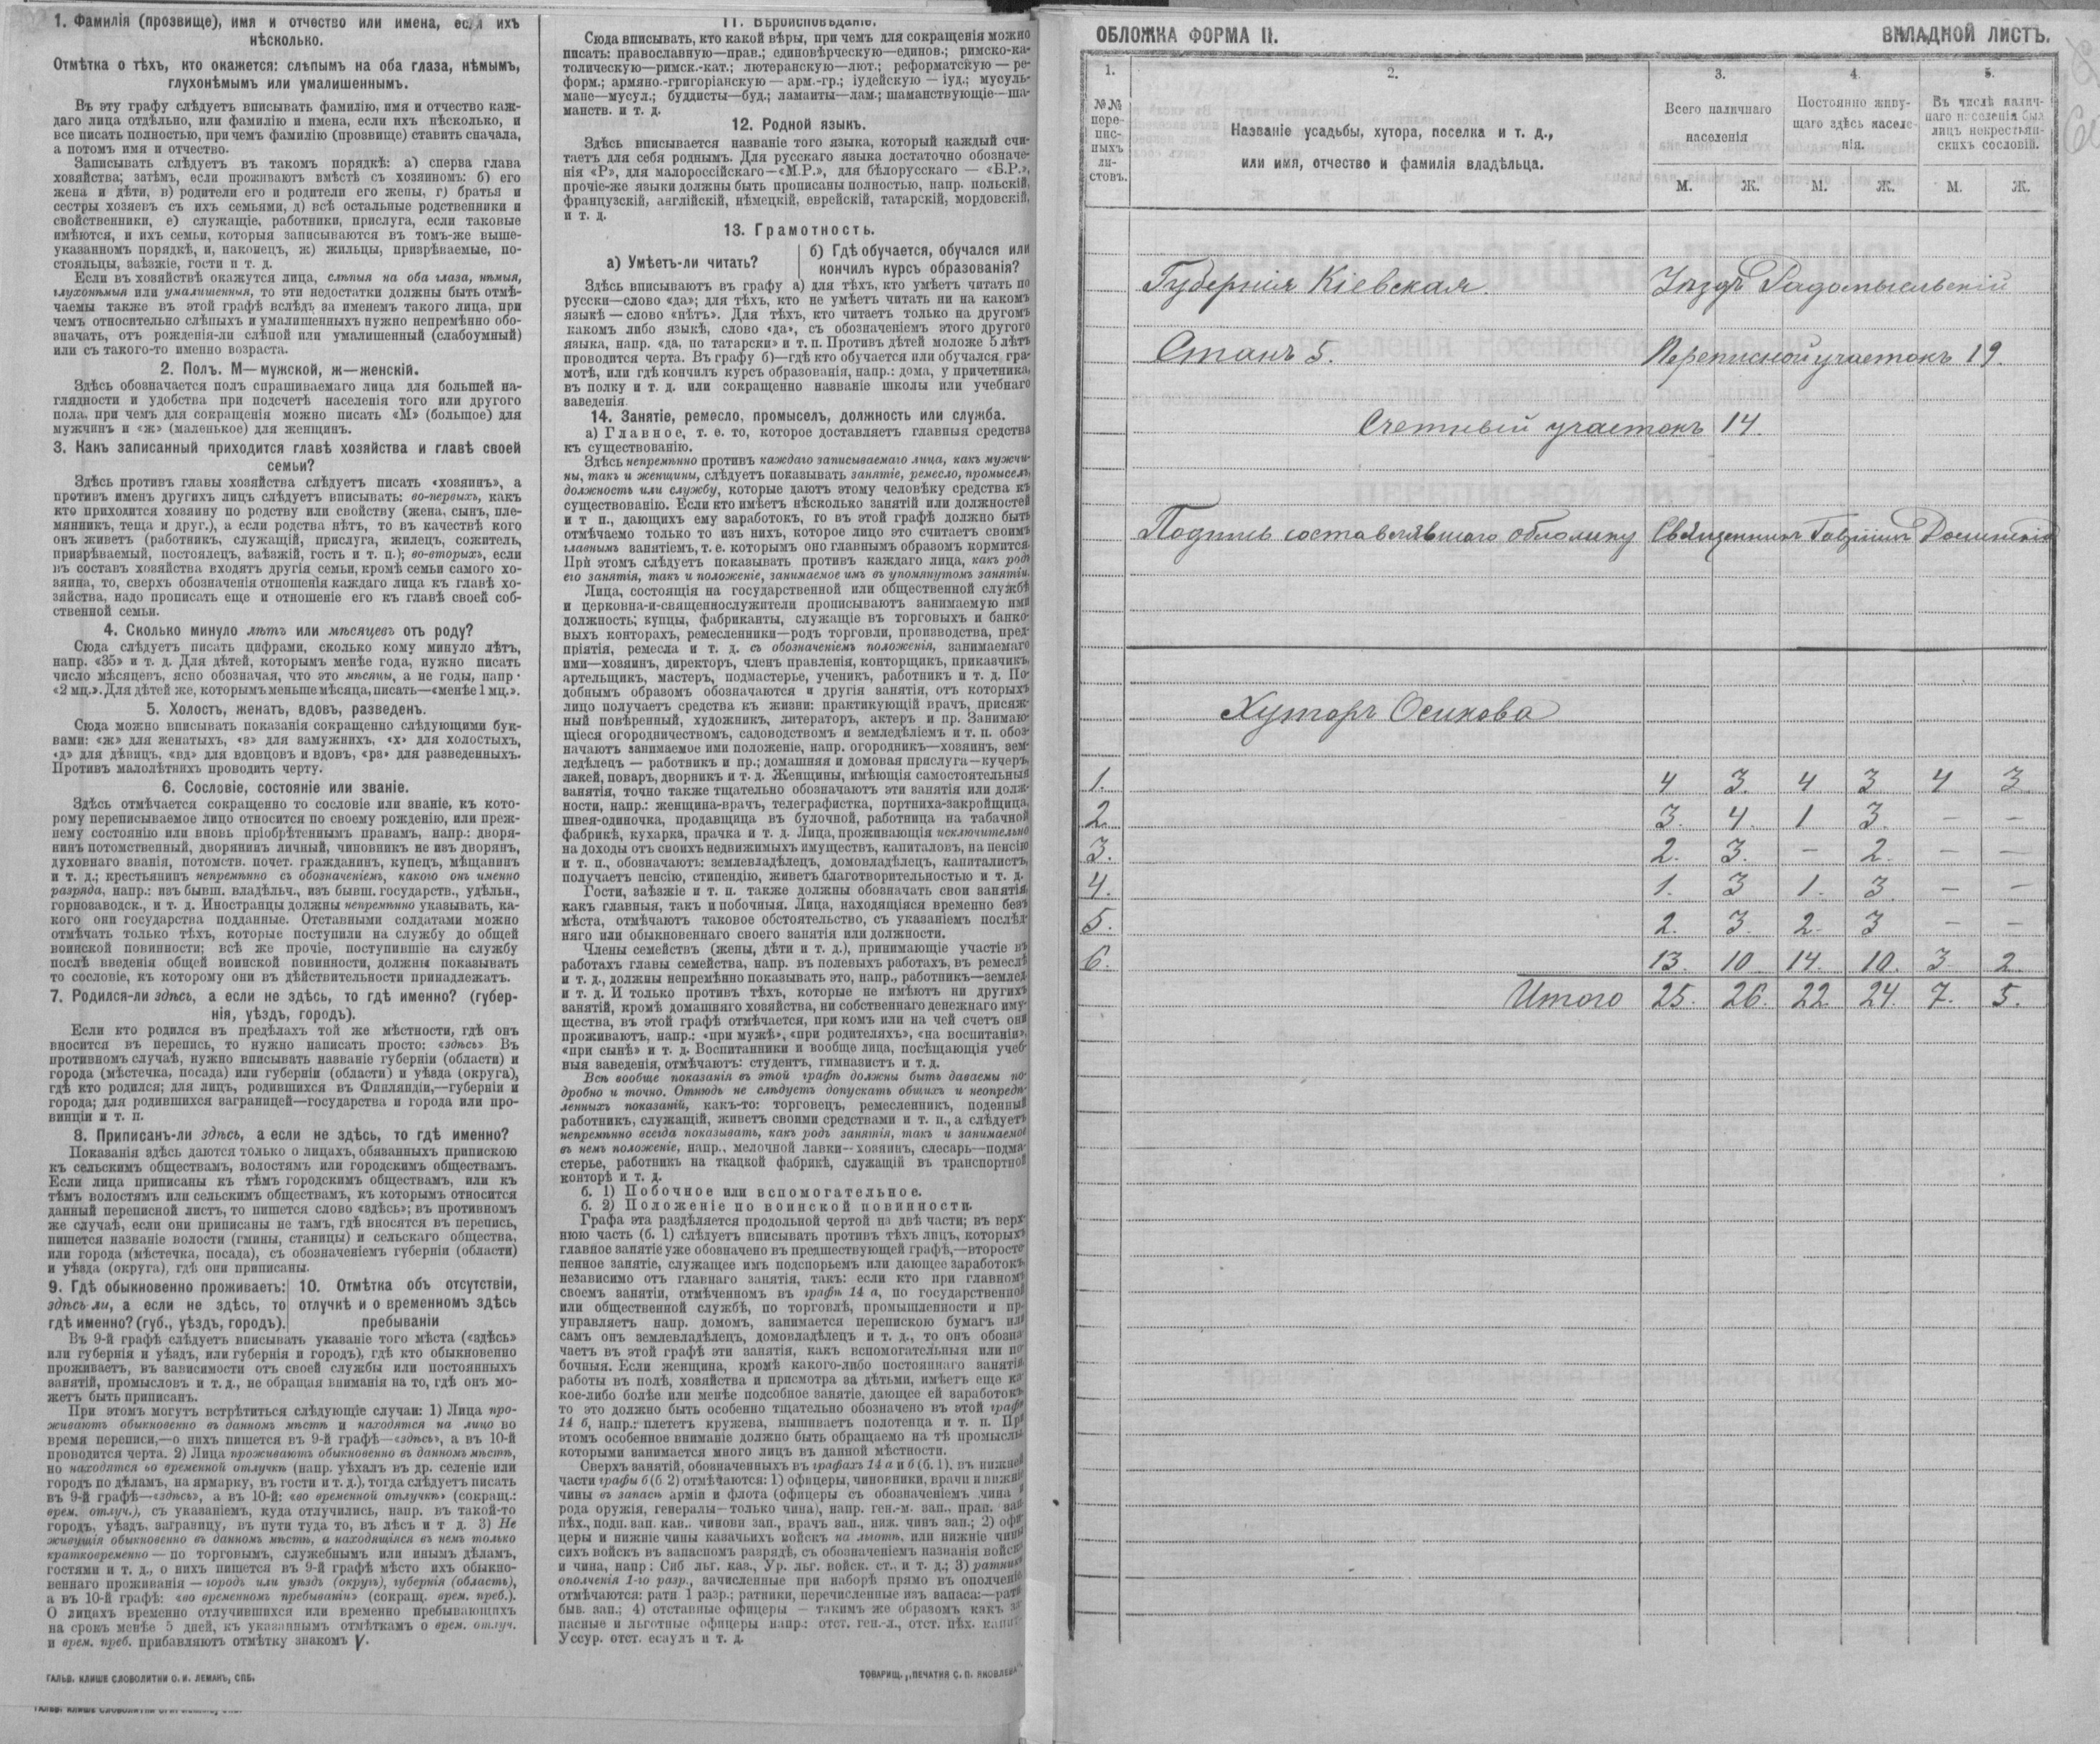 1. Фамилія (прозвище), имя и отчество или имена, если ихъ
нѣсколько.
Отмѣтка о тѣхъ, кто окажется: слѣпымъ на оба глаза, нѣмымъ,
глухонѣмымъ или умалишеннымъ.
Въ эту графу слѣдуетъ вписывать фамилію, имя и отчество каж-
даго лица отдѣльно, или фамилію и имена, если ихъ нѣсколько, и
все писать полностью, при чемъ фамилію (прозвище) ставить сначала,
а потомъ имя и отчество.
Записывать слѣдуетъ въ такомъ порядкѣ: а) сперва глава
хозяйства; затѣмъ, если проживаютъ вмѣстѣ съ хозяиномъ: б) его
жена и дѣти, в) родители его и родители его жены, г) братья и
сестры хозяевъ съ ихъ семьями, д) всѣ остальные родственники и
свойственники, е) служащіе, работники, прислуга, если таковые
имѣются, и ихъ семьи, которыя записываются въ томъ-же выше-
указанномъ порядкѣ, и, наконецъ, ж) жильцы, призрѣваемые, по-
стояльцы, заѣзжіе, гости и т. д.
Если въ хозяйствѣ окажутся лица, слѣпыя на оба глаза, нѣмыя,
глухонѣмыя или умалишенныя, то эти недостатки должны быть отмѣ-
чаемы также въ этой графѣ вслѣдъ за именемъ такого лица, при
чемъ относительно слѣпыхъ и умалишенныхъ нужно непремѣнно обо-
значать, отъ рожденія-ли слѣпой или умалишенный (слабоумный)
или съ такого-то именно возраста.
2. Полъ. М—мужской, ж—женскій.
Здѣсь обозначается полъ спрашиваемаго лица для большей на-
глядности и удобства при подсчетѣ населенія того или другого
пола, при чемъ для сокращенія можно писать «М» (большое) для
мужчинъ и «ж» (маленькое) для женщинъ.
3. Какъ записанный приходится главѣ хозяйства и главѣ своей
семьи?
Здѣсь противъ главы хозяйства слѣдуетъ писать «хозяинъ», а
противъ именъ другихъ лицъ слѣдуетъ вписывать: во-первыхъ, какъ
кто приходится хозяину по родству или свойству (жена, сынъ, пле-
мянникъ, теща и друг.), а если родства нѣтъ, то въ качествѣ кого
онъ живетъ (работникъ, служащій, прислуга, жилецъ, сожитель,
призрѣваемый, постоялецъ, заѣзжій, гость и т. п.); во-вторыхъ, если
въ составъ хозяйства входятъ другія семьи, кромѣ семьи самого хо-
зяина, то, сверхъ обозначенія отношенія каждаго лица къ главѣ хо-
зяйства, надо прописать еще и отношеніе его къ главѣ своей соб-
ственной семьи.
4. Сколько минуло лѣтъ или мѣсяцевъ отъ роду?
Сюда слѣдуетъ писать цифрами, сколько кому минуло лѣтъ,
напр. «35» и т. д. Для дѣтей, которымъ менѣе года, нужно писать
число мѣсяцевъ, ясно обозначая, что это мѣсяцы, а не годы, напр.
«2 мц.». Для дѣтей же, которымъ меньше мѣсяца, писать—«менѣе 1 мц.».
5. Холостъ, женатъ, вдовъ, разведенъ.
Сюда можно вписывать показанія сокращенно слѣдующими бук-
вами: «ж» для женатыхъ, «з» для замужнихъ, «х» для холостыхъ,
«д» для дѣвицъ, «вд» для вдовцовъ и вдовъ, «рз» для разведенныхъ.
Противъ малолѣтнихъ проводить черту.
6. Сословіе, состояніе или званіе.
Здѣсь отмѣчается сокращенно то сословіе или званіе, къ кото-
рому переписываемое лицо относится по своему рожденію, или преж-
нему состоянію или вновь пріобрѣтеннымъ правамъ, напр.: дворя-
нинъ потомственный, дворянинъ личный, чиновникъ не изъ дворянъ,
духовнаго званія, потомств. почет. гражданинъ, купецъ, мѣщанинъ
и т. д.; крестьянинъ непремѣнно съ обозначеніемъ, какого онъ именно
разряда, напр.: изъ бывш. владѣльч., изъ бывш. государств., удѣльн.,
горнозаводск., и т. д. Иностранцы должны непремѣнно указывать, ка-
кого они государства подданные. Отставными солдатами можно
отмѣчать только тѣхъ, которые поступили на службу до общей
воинской повинности; всѣ же прочіе, поступившіе на службу
послѣ введенія общей воинской повинности, должны показывать
то сословіе, къ которому они въ дѣйствительности принадлежатъ.
7. Родился-ли здѣсь, а если не здѣсь, то гдѣ именно? (губер-
нія, уѣздъ, городъ).
Если кто родился въ предѣлахъ той же мѣстности, гдѣ онъ
вносится въ перепись, то нужно написать просто: «здѣсь». Въ
противномъ случаѣ, нужно вписывать названіе губерніи (области) и
города (мѣстечка, посада) или губерніи (области) и уѣзда (округа),
гдѣ кто родился; для лицъ, родившихся въ Финляндіи,—губерніи и
города; для родившихся заграницей—государства и города или про-
винціи и т. п.
8. Приписанъ-ли здѣсь, а если не здѣсь, то гдѣ именно?
Показанія здѣсь даются только о лицахъ, обязанныхъ припискою
къ сельскимъ обществамъ, волостямъ или городскимъ обществамъ.
Если лица приписаны къ тѣмъ городскимъ обществамъ, или къ
тѣмъ волостямъ или сельскимъ обществамъ, къ которымъ относится
данный переписной листъ, то пишется слово «здѣсь»; въ противномъ
же случаѣ, если они приписаны не тамъ, гдѣ вносятся въ перепись,
пишется названіе волости (гмины, станицы) и сельскаго общества,
или города (мѣстечка, посада), съ обозначеніемъ губерніи (области)
и уѣзда (округа), гдѣ они приписаны.
9. Гдѣ обыкновенно проживаетъ:
здѣсь-ли, а если не здѣсь, то
гдѣ именно? (губ., уѣздъ, городъ).
10. Отмѣтка объ отсутствіи,
отлучкѣ и о временномъ здѣсь
пребываніи
Въ 9-й графѣ слѣдуетъ вписывать указаніе того мѣста («здѣсь»
или губернія и уѣздъ, или губернія и городъ), гдѣ кто обыкновенно
проживаетъ, въ зависимости отъ своей службы или постоянныхъ
занятій, промысловъ и т. д., не обращая вниманія на то, гдѣ онъ мо-
жетъ быть приписанъ.
При этомъ могутъ встрѣтиться слѣдующіе случаи: 1) Лица про-
живаютъ обыкновенно въ данномъ мѣстѣ и находятся на лицо во
время переписи,—о нихъ пишется въ 9-й графѣ—«здѣсь», а въ 10-й
проводится черта. 2) Лица проживаютъ обыкновенно въ данномъ мѣстѣ,
но находятся во временной отлучкѣ (напр. уѣхалъ въ др. селеніе или
городъ по дѣламъ, на ярмарку, въ гости и т. д.), тогда слѣдуетъ писать
въ 9-й графѣ—«здѣсь», а въ 10-й: «во временной отлучкѣ» (сокращ.:
врем. отлуч.), съ указаніемъ, куда отлучились, напр. въ такой-то
городъ, уѣздъ, заграницу, въ пути туда то, въ лѣсъ и т д. 3) Не
живущія обыкновенно въ данномъ мѣстѣ, а находящіяся въ немъ только
кратковременно — по торговымъ, служебнымъ или инымъ дѣламъ,
гостями и т. д., о нихъ пишется въ 9-й графѣ мѣсто ихъ обыкно-
веннаго проживанія — городъ или уѣздъ (округъ), губернія (область),
а въ 10-й графѣ: «во временномъ пребываніи» (сокращ. врем. преб.).
О лицахъ временно отлучившихся или временно пребывающихъ
на срокъ менѣе 5 дней, къ указаннымъ отмѣткамъ о врем. отлуч.
и врем. преб. прибавляютъ отмѣтку знакомъ V.
ГАЛЬВ. КЛИШЕ СЛОВОЛИТНИ О. И. ЛЕМАНЪ, СПБ.
11. Вѣроисповѣданіе.
Сюда вписывать, кто какой вѣры, при чемъ для сокращенія можно
писать: православную—прав.; единовѣрческую—единов.; римско-ка-
толическую—римск.-кат.; лютеранскую—лют.; реформатскую — ре-
форм.; армяно.-григоріанскую — арм.-гр.; іудейскую — іуд.; мусуль-
мане—мусул.; буддисты—буд.; ламаиты—лам.; шаманствующіе—ша-
манств. и т. д.
12. Родной языкъ.
Здѣсь вписывается названіе того языка, который каждый счи-
таетъ для себя роднымъ. Для русскаго языка достаточно обозначе-
нія «Р», для малороссійскаго—«М.Р.», для бѣлорусскаго — «Б.Р.»,
прочіе-же языки должны быть прописаны полностью, напр. польскій,
французскій, англійскій, нѣмецкій, еврейскій, татарскій, мордовскій,
и т. д.
13. Грамотность.
а) Умѣетъ-ли читать?
б) Гдѣ обучается, обучался или
кончилъ курсъ образованія?
Здѣсь вписываютъ въ графу а) для тѣхъ, кто умѣетъ читать по
русски—слово «да»; для тѣхъ, кто не умѣетъ читать ни на какомъ
языкѣ — слово «нѣтъ». Для тѣхъ, кто читаетъ только на другомъ
какомъ либо языкѣ, слово «да», съ обозначеніемъ этого другого
языка, напр. «да, по татарски» и т. п. Противъ дѣтей моложе 5 лѣтъ
проводится черта. Въ графу б)—гдѣ кто обучается или обучался гра-
мотѣ, или гдѣ кончилъ курсъ образованія, напр.: дома, у причетника,
въ полку и т. д. или сокращенно названіе школы или учебнаго
заведенія.
14. Занятіе, ремесло, промыселъ, должность или служба.
а) Главное, т. е. то, которое доставляетъ главныя средства
къ существованію.
Здѣсь непремѣнно противъ каждаго записываемаго лица, какъ мужчи-
ны, такъ и женщины, слѣдуетъ показывать занятіе, ремесло, промыселъ,
должность или службу, которые даютъ этому человѣку средства къ
существованію. Если кто имѣетъ нѣсколько занятій или должностей
и т п., дающихъ ему заработокъ, то въ этой графѣ должно быть
отмѣчаемо только то изъ нихъ, которое лицо это считаетъ своимъ
главнымъ занятіемъ, т. е. которымъ оно главнымъ образомъ кормится.
При этомъ слѣдуетъ показывать противъ каждаго лица, какъ родъ
его занятія, такъ и положеніе, занимаемое имъ въ упомянутомъ занятіи.
Лица, состоящія на государственной или общественной службѣ
и церковно-и-священнослужители прописываютъ занимаемую ими
должность; купцы, фабриканты, служащіе въ торговыхъ и банко-
выхъ конторахъ, ремесленники—родъ торговли, производства, пред-
пріятія, ремесла и т. д. съ обозначеніемъ положенія, занимаемаго
ими—хозяинъ, директоръ, членъ правленія, конторщикъ, приказчикъ,
артельщикъ, мастеръ, подмастерье, ученикъ, работникъ и т. д. По-
добнымъ образомъ обозначаются и другія занятія, отъ которыхъ
лицо получаетъ средства къ жизни: практикующій врачъ, присяж-
ный повѣренный, художникъ, литераторъ, актеръ и пр. Занимаю-
щіеся огородничествомъ, садоводствомъ и земледѣліемъ и т. п. обоз-
начаютъ занимаемое ими положеніе, напр. огородникъ—хозяинъ, зем-
ледѣлецъ — работникъ и пр.; домашняя и домовая прислуга—кучеръ,
лакей, поваръ, дворникъ и т. д. Женщины, имѣющія самостоятельныя
занятія, точно также тщательно обозначаютъ эти занятія или долж-
ности, напр.: женщина-врачъ, телеграфистка, портниха-закройщица,
швея-одиночка, продавщица въ булочной, работница на табачной
фабрикѣ, кухарка, прачка и т. д. Лица, проживающія исключительно
на доходы отъ своихъ недвижимыхъ имуществъ, капиталовъ, на пенсію
и т. п., обозначаютъ: землевладѣлецъ, домовладѣлецъ, капиталистъ,
получаетъ пенсію, стипендію, живетъ благотворительностью и т. д.
Гости, заѣзжіе и т. п. также должны обозначать свои занятія,
какъ главныя, такъ и побочныя. Лица, находящіяся временно безъ
мѣста, отмѣчаютъ таковое обстоятельство, съ указаніемъ послѣд-
няго или обыкновеннаго своего занятія или должности.
Члены семействъ (жены, дѣти и т. д.), принимающіе участіе въ
работахъ главы семейства, напр. въ полевыхъ работахъ, въ ремеслѣ
и т. д., должны непремѣнно показывать это, напр., работникъ—землед.
и т. д. И только противъ тѣхъ, которые не имѣютъ ни другихъ
занятій, кромѣ домашняго хозяйства, ни собственнаго денежнаго иму-
щества, въ этой графѣ отмѣчается, при комъ или на чей счетъ они
проживаютъ, напр.: «при мужѣ», «при родителяхъ», «на воспитаніи»,
«при сынѣ» и т. д. Воспитанники и вообще лица, посѣщающія учеб-
ныя заведенія, отмѣчаютъ: студентъ, гимназистъ и т. д.
Всѣ вообще показанія въ этой графѣ должны быть даваемы по-
дробно и точно. Отнюдь не слѣдуетъ допускать общихъ и неопредѣ-
ленныхъ показаній, какъ-то: торговецъ, ремесленникъ, поденный
работникъ, служащій, живетъ своими средствами и т. п., а слѣдуетъ
непремѣнно всегда показывать, какъ родъ занятія, такъ и занимаемое
въ немъ положеніе, напр., мелочной лавки—хозяинъ, слесарь—подма-
стерье, работникъ на ткацкой фабрикѣ, служащій въ транспортной
конторѣ и т. д.
б. 1) Побочное или вспомогательное.
б. 2) Положеніе по воинской повинности.
Графа эта раздѣляется продольной чертой на двѣ части; въ верх-
нюю часть (б. 1) слѣдуетъ вписывать противъ тѣхъ лицъ, которыхъ
главное занятіе уже обозначено въ предшествующей графѣ,—второсте-
пенное занятіе, служащее имъ подспорьемъ или дающее заработокъ,
независимо отъ главнаго занятія, такъ: если кто при главномъ
своемъ занятіи, отмѣченномъ въ графѣ 14 а, по государственной
или общественной службѣ, по торговлѣ, промышленности и пр.
управляетъ напр. домомъ, занимается перепискою бумагъ или
самъ онъ землевладѣлецъ, домовладѣлецъ и т. д., то онъ обозна-
чаетъ въ этой графѣ эти занятія, какъ вспомогательныя или по-
бочныя. Если женщина, кромѣ какого-либо постояннаго занятія,
работы въ полѣ, хозяйства и присмотра за дѣтьми, имѣетъ еще ка-
кое-либо болѣе или менѣе подсобное занятіе, дающее ей заработокъ,
то это должно быть особенно тщательно обозначено въ этой графѣ
14 б, напр.: плететъ кружева, вышиваетъ полотенца и т. п. При
этомъ особенное вниманіе должно быть обращаемо на тѣ промыслы,
которыми занимается много лицъ въ данной мѣстности.
Сверхъ занятій, обозначенныхъ въ графахъ 14 а и б (б. 1), въ нижней
части графы б (б 2) отмѣчаются: 1) офицеры, чиновники, врачи и нижніе
чины въ запасѣ арміи и флота (офицеры съ обозначеніемъ чина и
рода оружія, генералы—только чина), напр. ген.-м. зап., прап. зап.
пѣх., подп. зап. кав., чиновн зап., врачъ зап., ниж. чинъ зап.; 2) офи-
церы и нижніе чины казачьихъ войскъ на льготѣ, или нижніе чины
сихъ войскъ въ запасномъ разрядѣ, съ обозначеніемъ названія войска
и чина, напр: Сиб льг. каз., Ур. льг. войск. ст., и т. д.; 3) ратники
ополченія 1-го разр., зачисленные при наборѣ прямо въ ополченіе
отмѣчаются: ратн 1 разр.; ратники, перечисленные изъ запаса:—ратн
быв. зап.; 4) отставные офицеры — такимъ же образомъ какъ за-
пасные и льготные офицеры напр.: отст. ген.-л., отст. пѣх. капит.
Уссур. отст. есаулъ и т. д.
ТОВАРИЩ. „ПЕЧАТНЯ С. П. ЯКОВЛЕВА“
ОБЛОЖКА ФОРМА II. ВКЛАДНОЙ ЛИСТЪ.
1. 2. 3. 4. 5.
№№
пере-
пис-
ныхъ
ли-
стовъ.
Названіе усадьбы, хутора, поселка и т. д.,
или имя, отчество и фамилія владѣльца.
Всего наличнаго
населенія
Постоянно живу-
щаго здѣсь населе-
нія.
Въ числѣ налич-
наго населенія был.
лицъ некрестьян-
скихъ сословій.
М. Ж. М. Ж. М. Ж.
Губернія Кіевская. Уѣздъ Радомысльскій
Станъ 5. Переписной участокъ 19.
Счетный участокъ 14.
Подпись составлявшаго обложку Священникъ Гавріилъ
Хуторъ Осикова
1. 4 3. 4 3 4 3
2. 3. 4. 1 3. – –
3. 2. 3. – 2. – –
4. 1. 3 1. 3 – –
5. 2. 3. 2. 3 – –
6. 13. 10 14. 10. 3 2
Итого 25. 26. 22. 24. 7. 5.